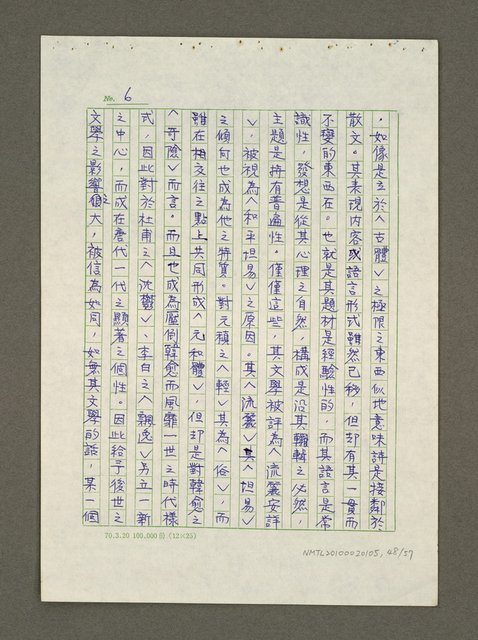 No. 6
，如像是立於＜古體＞之極限之東西似地意味詩是接鄰於
散文。其表現內容或語言形式雖然已移，但卻有其一貫而
不變的東西在。也就是其題材是經驗性的，而其語言是常
識性，發想是從其心理之自然，構成是沿其邏輯之必然，
主題是持有普遍性。僅僅這些，其文學被評為＜流麗安詳
＞，被視為＜和平坦易＞之原因。其＜流麗＞其＜坦易＞
之傾向也成為他之特質。對元稹之＜輕＞其為＜俗＞，而
雖在相交往之點上共同形成＜元和體＞，但却是對韓愈之
＜奇險＞而言。而且也成為壓倒韓愈而風靡一世之時代樣
式，因此對於杜甫之＜沈鬱＞、李白之＜飄逸＞另立一新
之中心，而成在唐代一代之顯著之個性。因此給予後世之
文學之影響之很大，被信為如同，如無其文學的話，某一個
70.3.20 100.000份 (12×25)
NMTL20100020105, 48/57